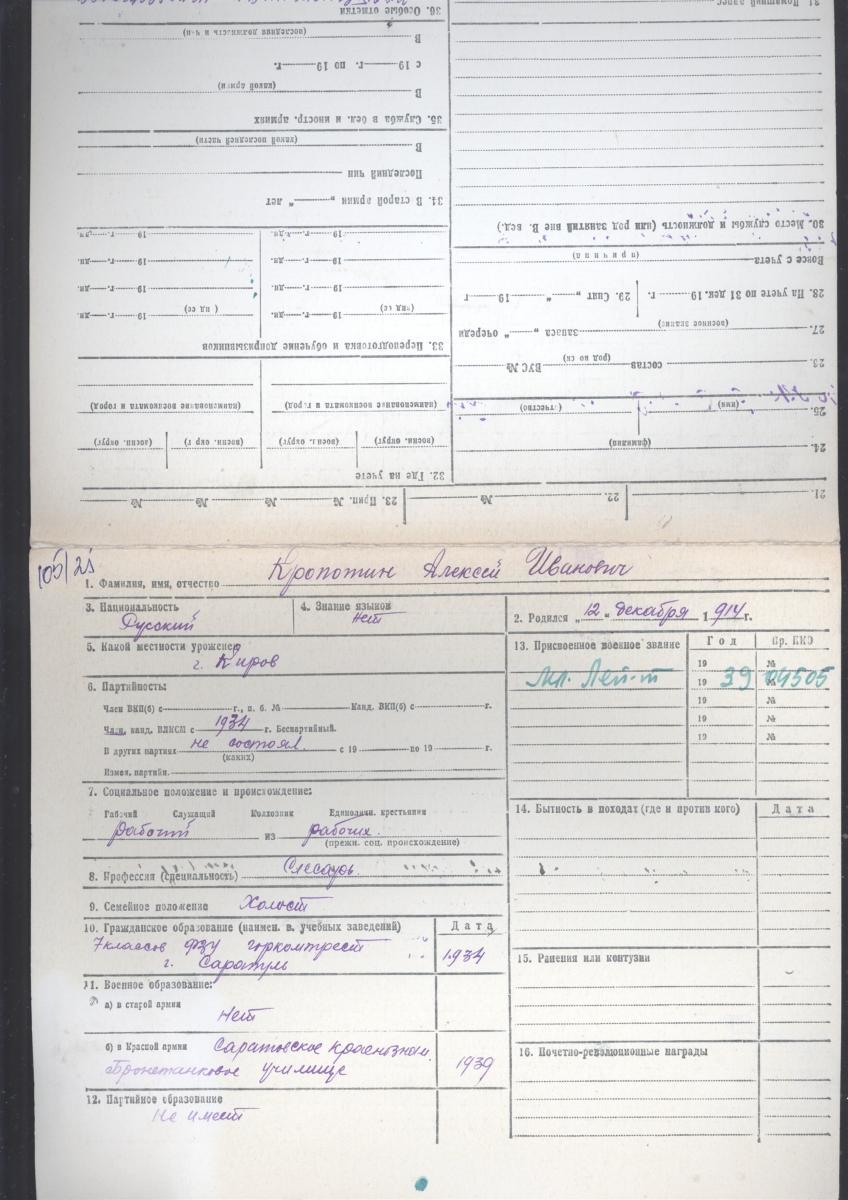 36. Особые отметки
(последняя должность и ч-и)
В
с 19 г. по 19 г.
(какой армии)
В
35. Служба в бел. и иностр. армиях
(какой последней части)
В
Последний чин
34. В старой армии „ “ лет
19 г. дн. 19 г. дн.
19 г. дн. 19 г. дн.
19 г. дн. 19 г. дн.
19 г. дн. 19 г. дн.
33. Переподготовка и обучение допризывников
(наименование военкомата и город) (наименование военкомата и город)
(военн. округ) (военн. округ) (военн. округ) (военн. округ)
32. Где на учете
31. Домашний адрес
30. Место службы и должность (или род занятий вне В. вед.)
(причина)
Вовсе с учета
28. На учете по 31 дек. 19 г. 29. Снят „ “ 19 г
(военное звание)
27. запаса „ “ очереди
состав (род во ск) ВУС №
25. (имя) (отчество)
24. (фамилия)
21. 22. № 23. Прип. № № № №
105/21
1. Фамилия, имя, отчество Кропотин Алексей Иванович
3. Национальность Русский
4. Знание языков Нет
2. Родился „12“ декабря 1914 г.
5. Какой местности уроженец г. Киров
6. Партийность:
Член ВКП(б) с г., п. б. № Канд. ВКП(б) с г.
Член, канд. ВЛКСМ с 1934 г. Беспартийный.
В других партиях не состоял с 19 по 19 г.
(каких)
Измен. партийн.
7. Социальное положение и происхождение:
Рабочий Служащий Колхозник Единоличн. крестьянин
рабочий из рабочих.
(прежн. соц. происхождение)
8. Профессия (специальность) Слесарь.
9. Семейное положение Холост
10. Гражданское образование (наимен. в. учебных заведений) Дата
7 классов ФЗУ горкомтрест
г. Сарапуль 1934
11. Военное образование:
а) в старой армии
Нет
б) в Красной армии Саратовское краснознам.
Бронетанковое училище 1939
12. Партийное образование
Не имеет
13. Присвоенное военное звание Год Пр. НКО
19 №
Мл. Лей-т 19 39 № 04505
19 №
19 №
19 №
14. Бытность в походах (где и против кого) Дата
15. Ранения или контузии
16. Почетно-революционные награды